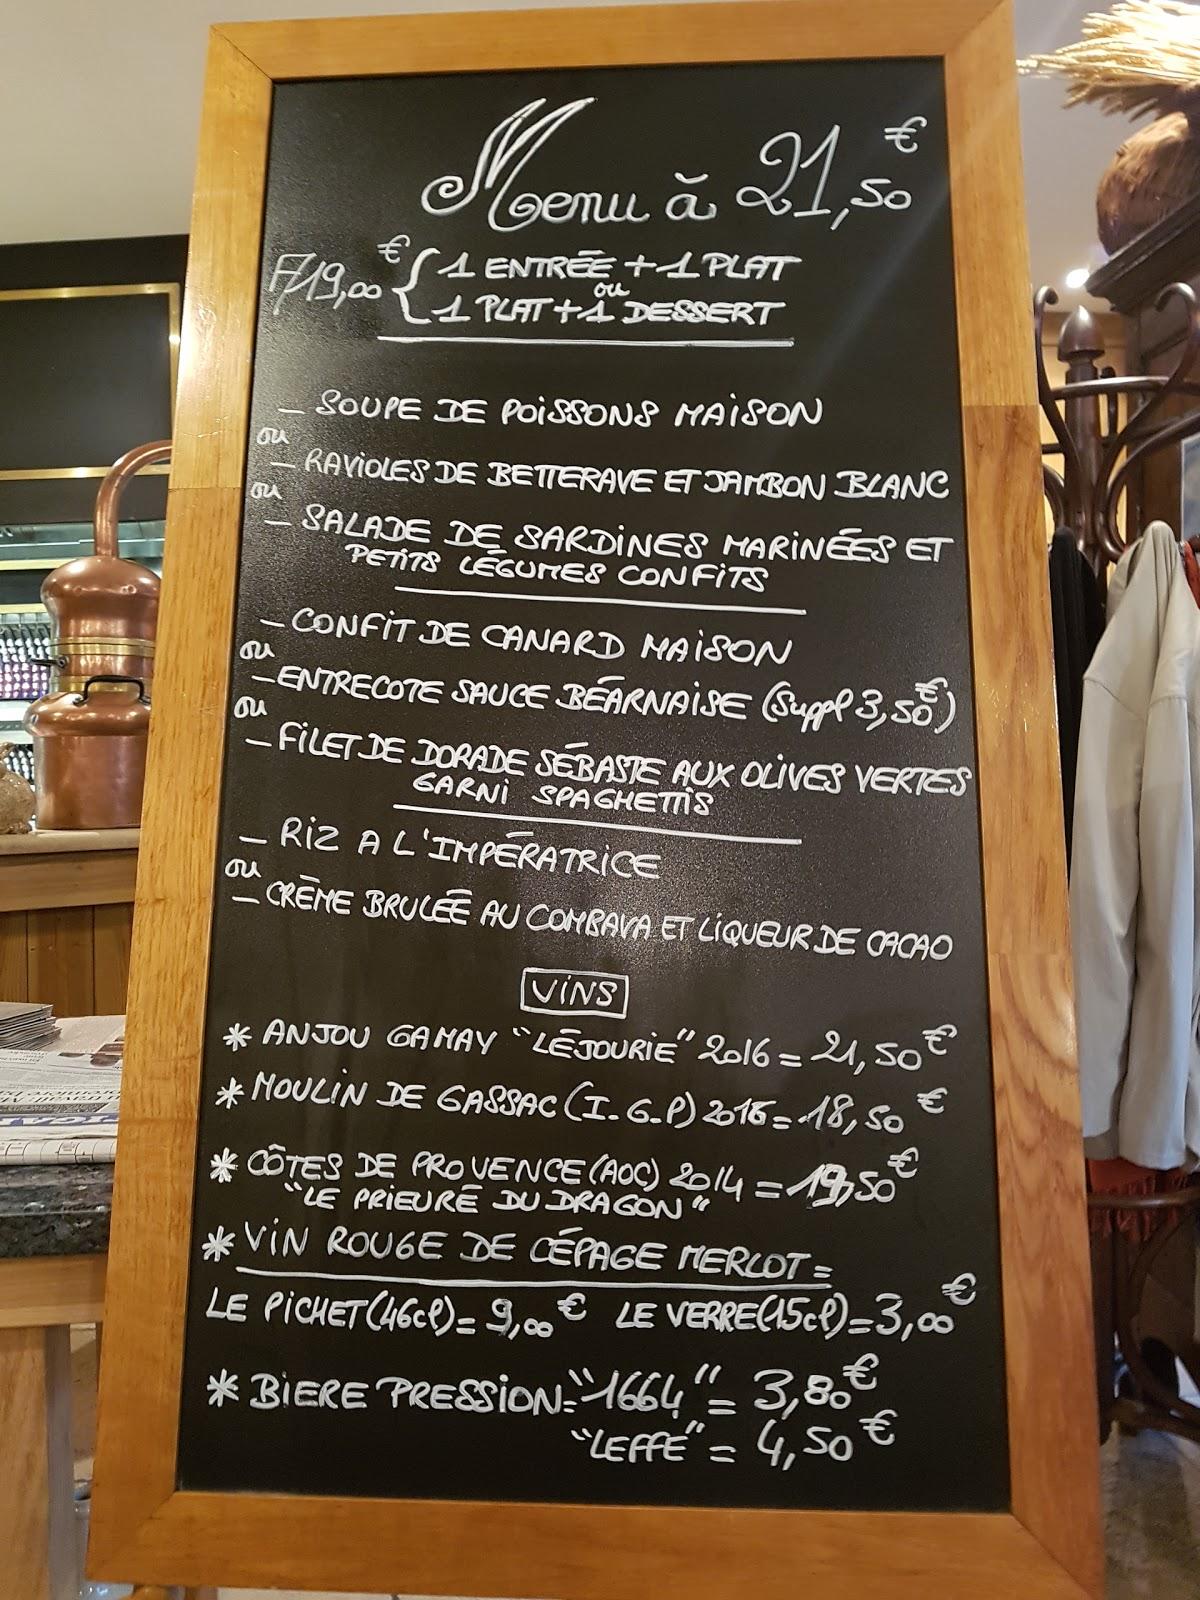 Menu à 21,50€
F/19,00€ { 1 ENTRÉE + 1 PLAT
ou
1 PLAT + 1 DESSERT
_ SOUPE DE POISSONS MAISON
ou
_ RAVIOLES DE BETTERAVE ET JAMBON BLANC
ou
_ SALADE DE SARDINES MARINÉES ET
PETITS LÉGUMES CONFITS
_ CONFIT DE CANARD MAISON
ou
_ ENTRECOTE SAUCE BÉARNAISE (Suppl 3,50€)
ou
_ FILET DE DORADE SÉBASTE AUX OLIVES VERTES
GARNI SPAGHETTIS
_ RIZ A L'IMPÉRATRICE
ou
_ CRÈME BRULÉE AU COMBAVA ET LIQUEUR DE CACAO
VINS
* ANJOU GAMAY "LÉJOURIE" 2016 = 21,50€
* MOULIN DE GASSAC (I-G-P) 2016 = 18,50€
* CÔTES DE PROVENCE (AOC) 2014 = 19,50€
"LE PRIEURÉ DU DRAGON"
* VIN ROUGE DE CÉPAGE MERLOT =
LE PICHET (46cl) = 9,00€ LE VERRE (15cl) = 3,00€
* BIERE PRESSION = "1664" = 3,80€
"LEFFE" = 4,50€